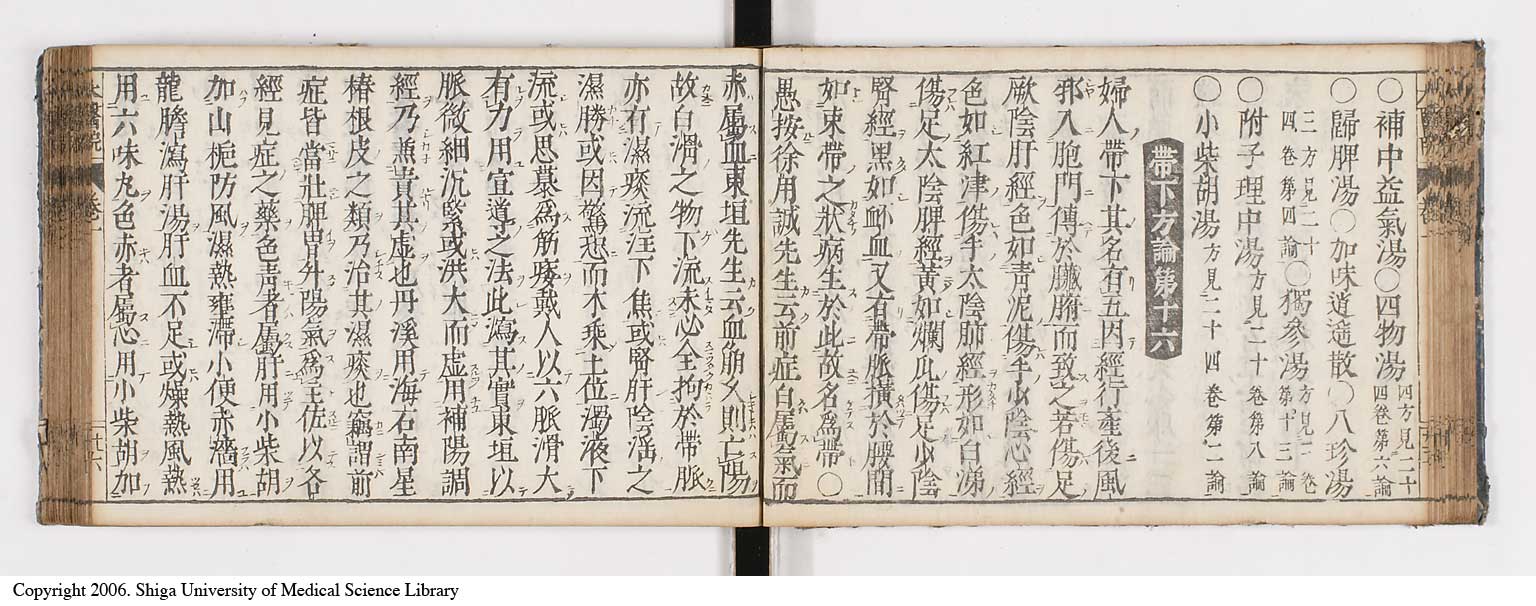 ○補中益氣湯○四物湯四方見二十四卷第六論
○歸脾湯○加味逍遙散○八珍湯
三方見二十四卷第四論○獨參湯方見二卷第十三論
○附子理中湯方見二十卷第八論
○小柴胡湯方見二十四卷第二論
帶下方論第十六
婦人帶下其名有五因經行產後風
邪入胞門傳於臟腑而致之若傷足
厥陰肝經色如青泥傷手少陰心經
色如紅津傷手太陰肺經形如白涕
傷足太陰脾經黃如爛瓜傷足少陰
腎經黑如衃血又有帶脈橫於腰間
如束帶之狀病生於此故名為帶○
愚按徐用誠先生云前症白屬氣而
赤屬血東垣先生云血崩久則亡陽
故白滑之物下流未必全拘於帶脈
亦有濕痰流注下焦或腎肝陰淫之
濕勝或因驚恐而木乘土位濁液下
流或思慕為筋痿戴人以六脈滑大
有力用宜導之法此瀉其實東垣以
脈微細沉緊或洪大而虛用補陽調
經乃兼責其虛也丹溪用海石南星
椿根皮之類乃治其濕痰也竊謂前
症皆當壯脾胃升陽氣為主佐以各
經見症之藥色青者屬肝用小柴胡
加山梔防風濕熱壅滯小便赤澀用
龍膽瀉肝湯肝血不足或燥熱風熱
用六味丸色赤者屬心用小柴胡加
太醫院 卷一
廿六
Copyright 2006. Shiga University of Medical Science Library